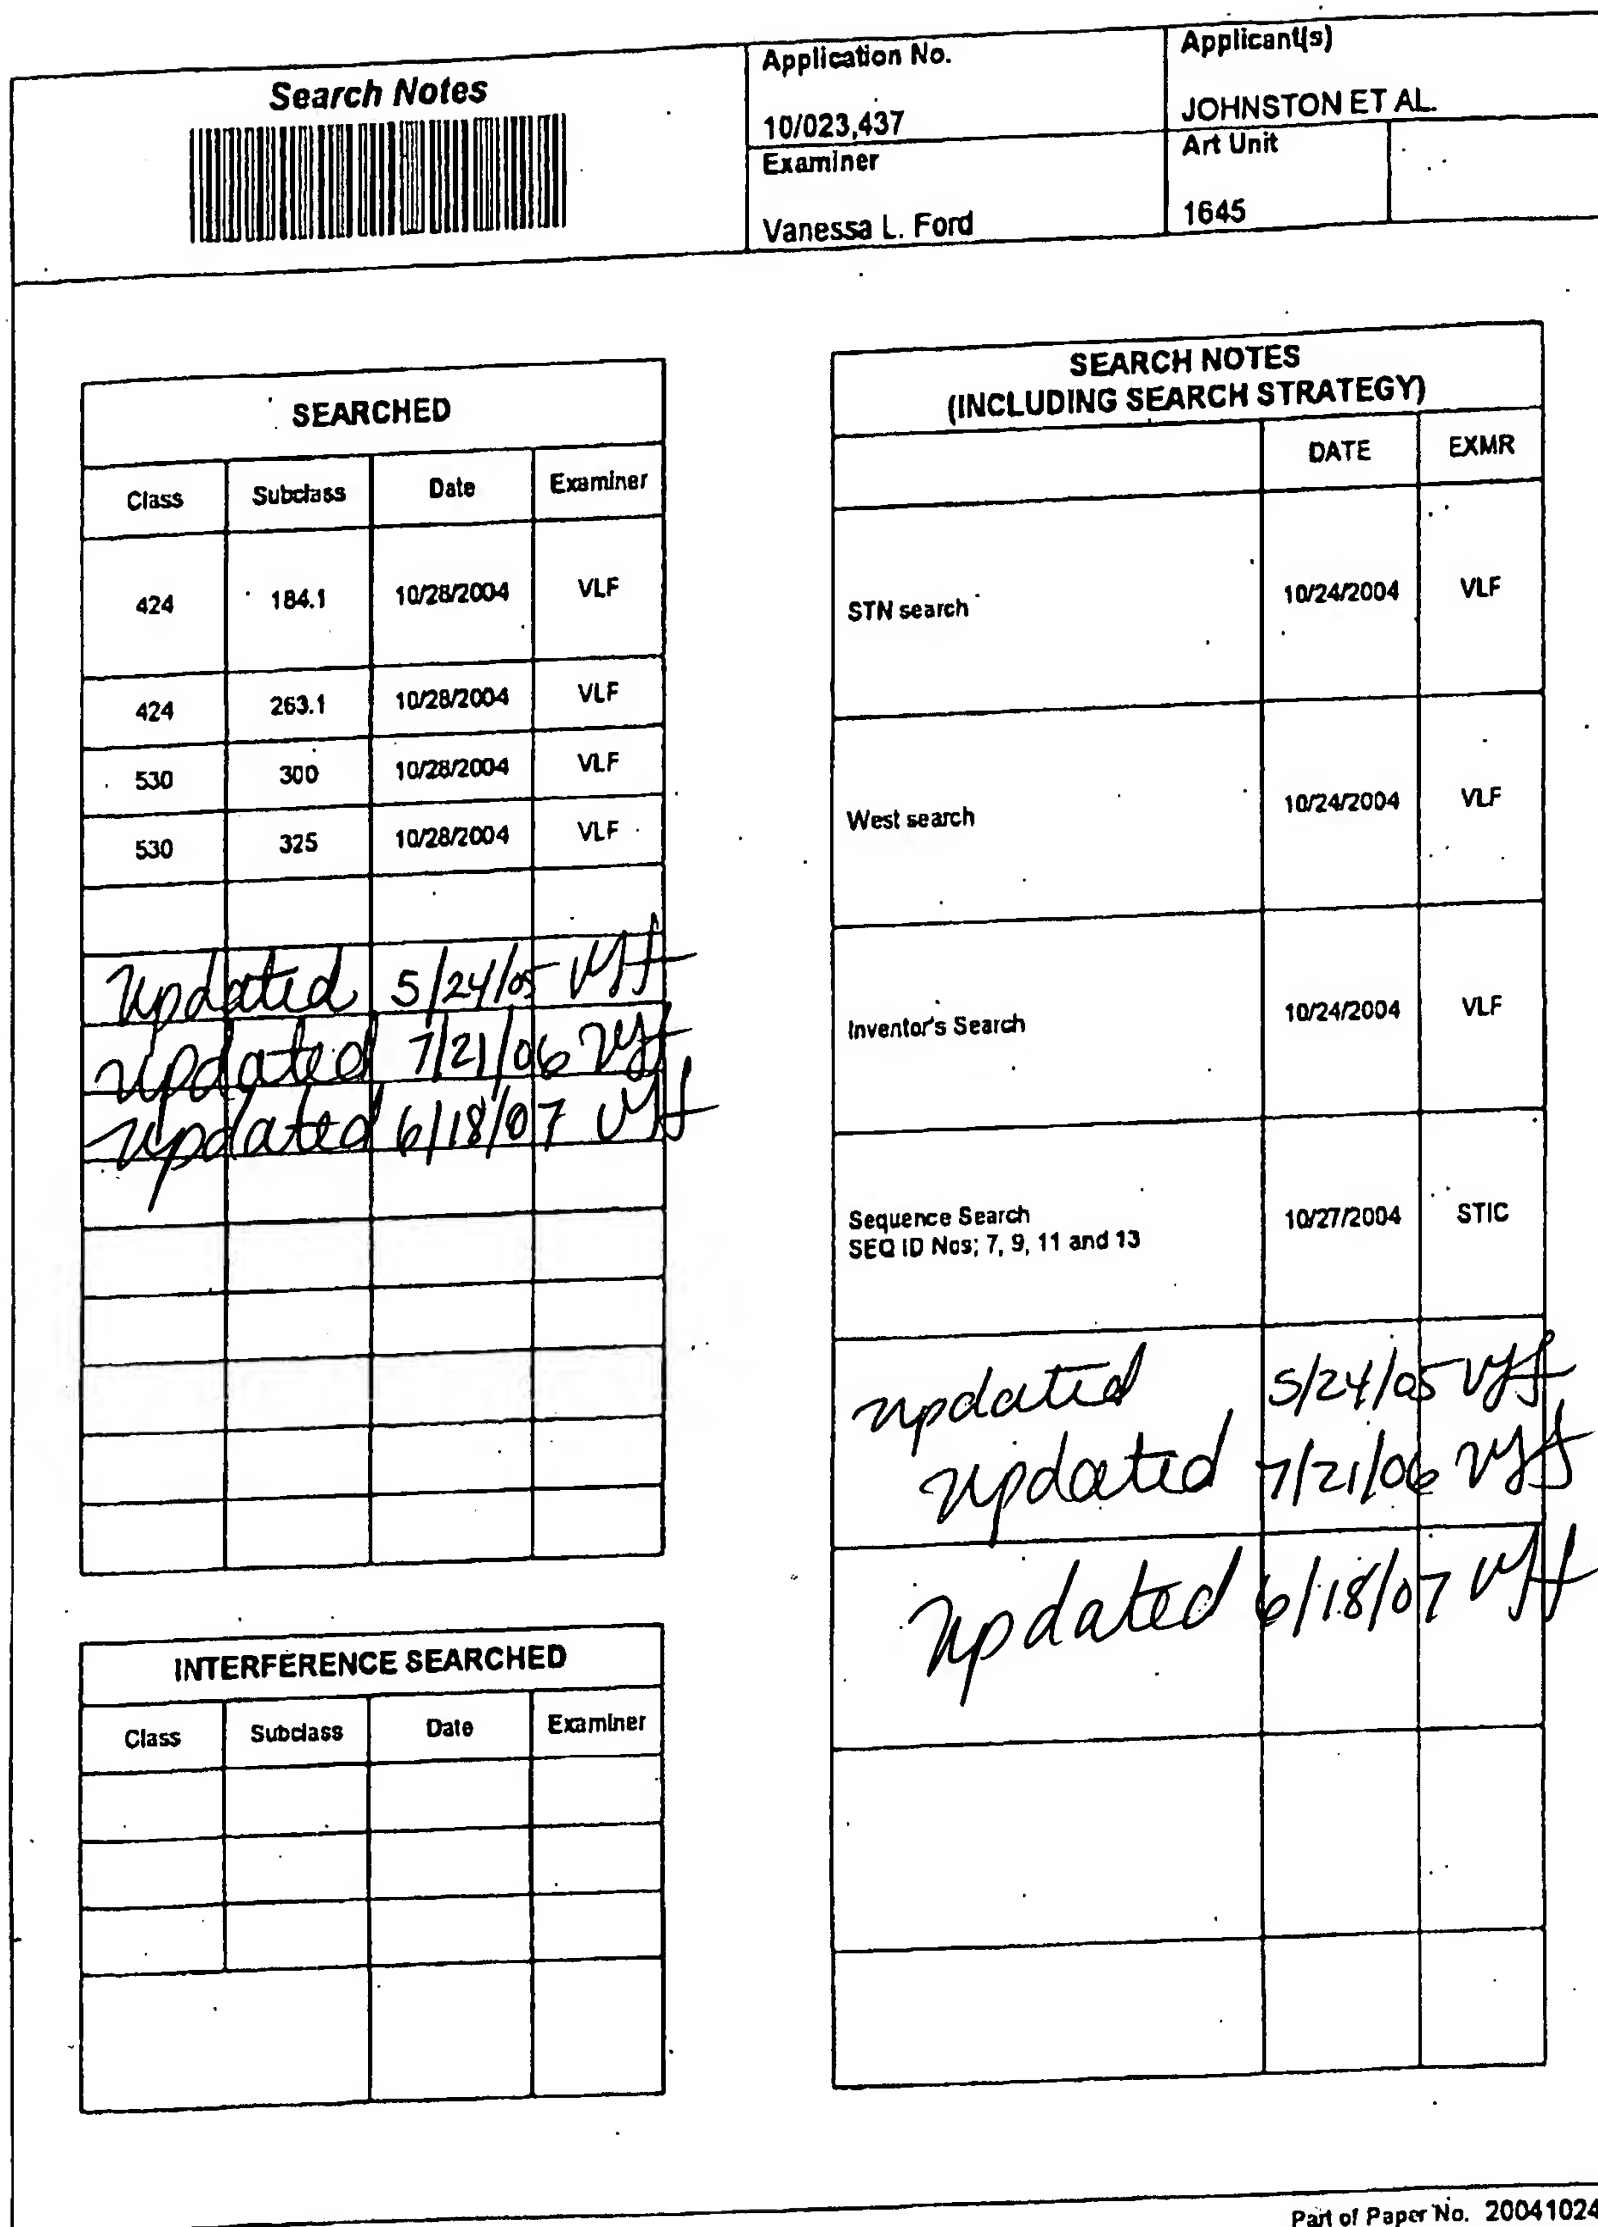 Search Notes
Application No.
10/023,437
Applicant(s)
JOHNSTON ET AL.
Examiner
Vanessa L. Ford
Art Unit
1645
SEARCHED
Class Subclass Date Examiner
424 184.1 10/28/2004 VLF
424 263.1 10/28/2004 VLF
530 300 10/28/2004 VLF
530 325 10/28/2004 VLF
Updated 5/24/05 vlf
updated 7/21/06 vlf
updated 6/18/07 vlf
INTERFERENCE SEARCHED
Class Subclass Date Examiner
SEARCH NOTES
(INCLUDING SEARCH STRATEGY)
DATE EXMR
STN search 10/24/2004 VLF
West search 10/24/2004 VLF
Inventor's Search 10/24/2004 VLF
Sequence Search
SEQ ID Nos; 7, 9, 11 and 13 10/27/2004 STIC
updated 5/24/05 vlf
updated 7/21/06 vlf
updated 6/18/07 vlf
Part of Paper No. 20041024